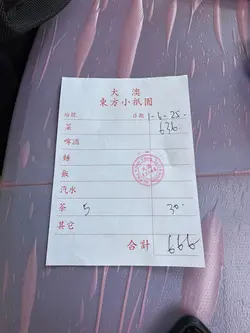 大 澳
東方小祇園
枱號 日期 1-6-25-
菜 636
啤酒
麵
飯
汽水
茶 5 30-
其它
合計 666